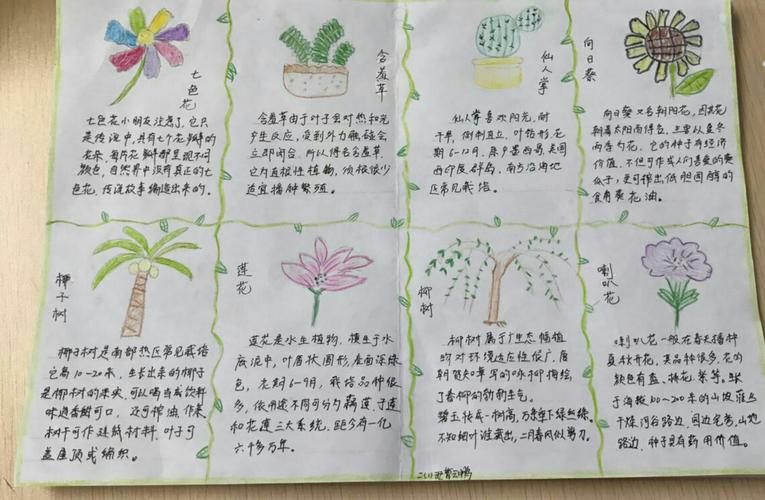 七色花
七色花小朋友注意了,它只
是传说中,具有七个花瓣的
花朵,每片花瓣都呈现不同
颜色,自然界中没有真正的七
色花,传说故事编造出来的。
含羞草
含羞草由于叶子会对热和光
产生反应,受到外力触碰会
立即闭合,所以得名含羞草,
它为直根性植物,须根很少
适宜播种繁殖。
仙人掌
仙人掌喜欢阳光,耐
干旱,
期6-12月,原产墨西哥,美国
西印度群岛,南方沿海地
区常见栽培。
向日葵
向日葵又名朝阳花,因其花
朝着太阳而得名,
它的种子有经济
价值,不但可作成人们喜爱的葵
瓜子,更可榨出低胆固醇的
食用葵花油。
椰子树
椰子树是南部热区常见栽培
它高10-20米,生长出来的椰子
是椰树的果实,可以喝当成饮料
味道香甜可口,还可榨油,作菜
树干可作建筑材料,叶子可
盖屋顶或编织。
莲花
莲花是水生植物,横生于水
底泥中,叶盾状圆形,表面深绿
色,花期6-9月,栽培品种很
多,依用途不同可分为藕莲,子莲
和花莲三大系统,距今有一亿
六千多万年。
柳树
柳树属于广生态幅植
物对环境适应性很广,唐
朝贺知章写的咏柳描绘
了春柳的勃勃生气。
碧玉妆成一树高,万条垂下绿丝绦。
不知细叶谁裁出,二月春风似剪刀。
喇叭花
喇叭花一般在春天播种
夏秋开花,其品种很多,花的
颜色有蓝、桃花、紫等。生长
于海拔100~200米的山坡灌丛
干燥河谷路边,园边宅旁,山地
路边,种子具有药用价值。